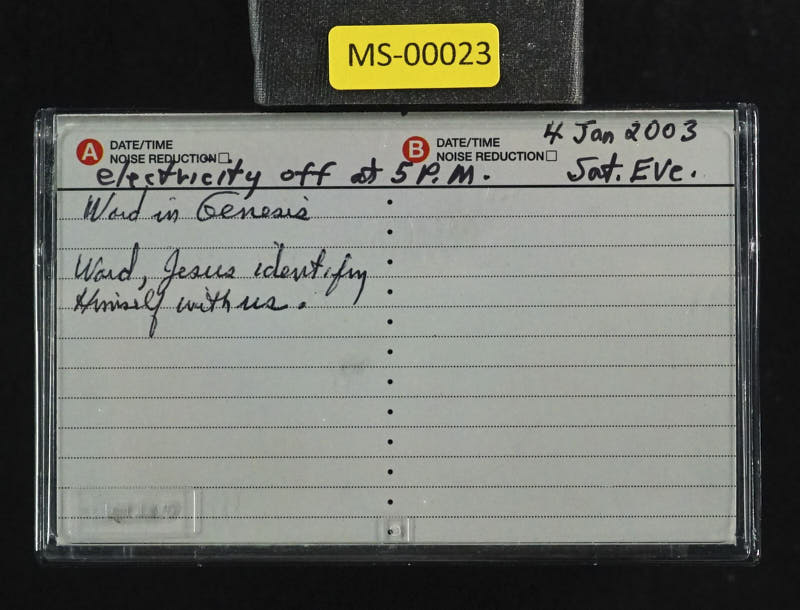 MS-00023
A DATE/TIME B DATE/TIME 4 Jan 2003
NOISE REDUCTION NOISE REDUCTION
electricity off at 5 P.M. Sat. Eve.
Word in Genesis
Word, Jesus identify
Himself with us.